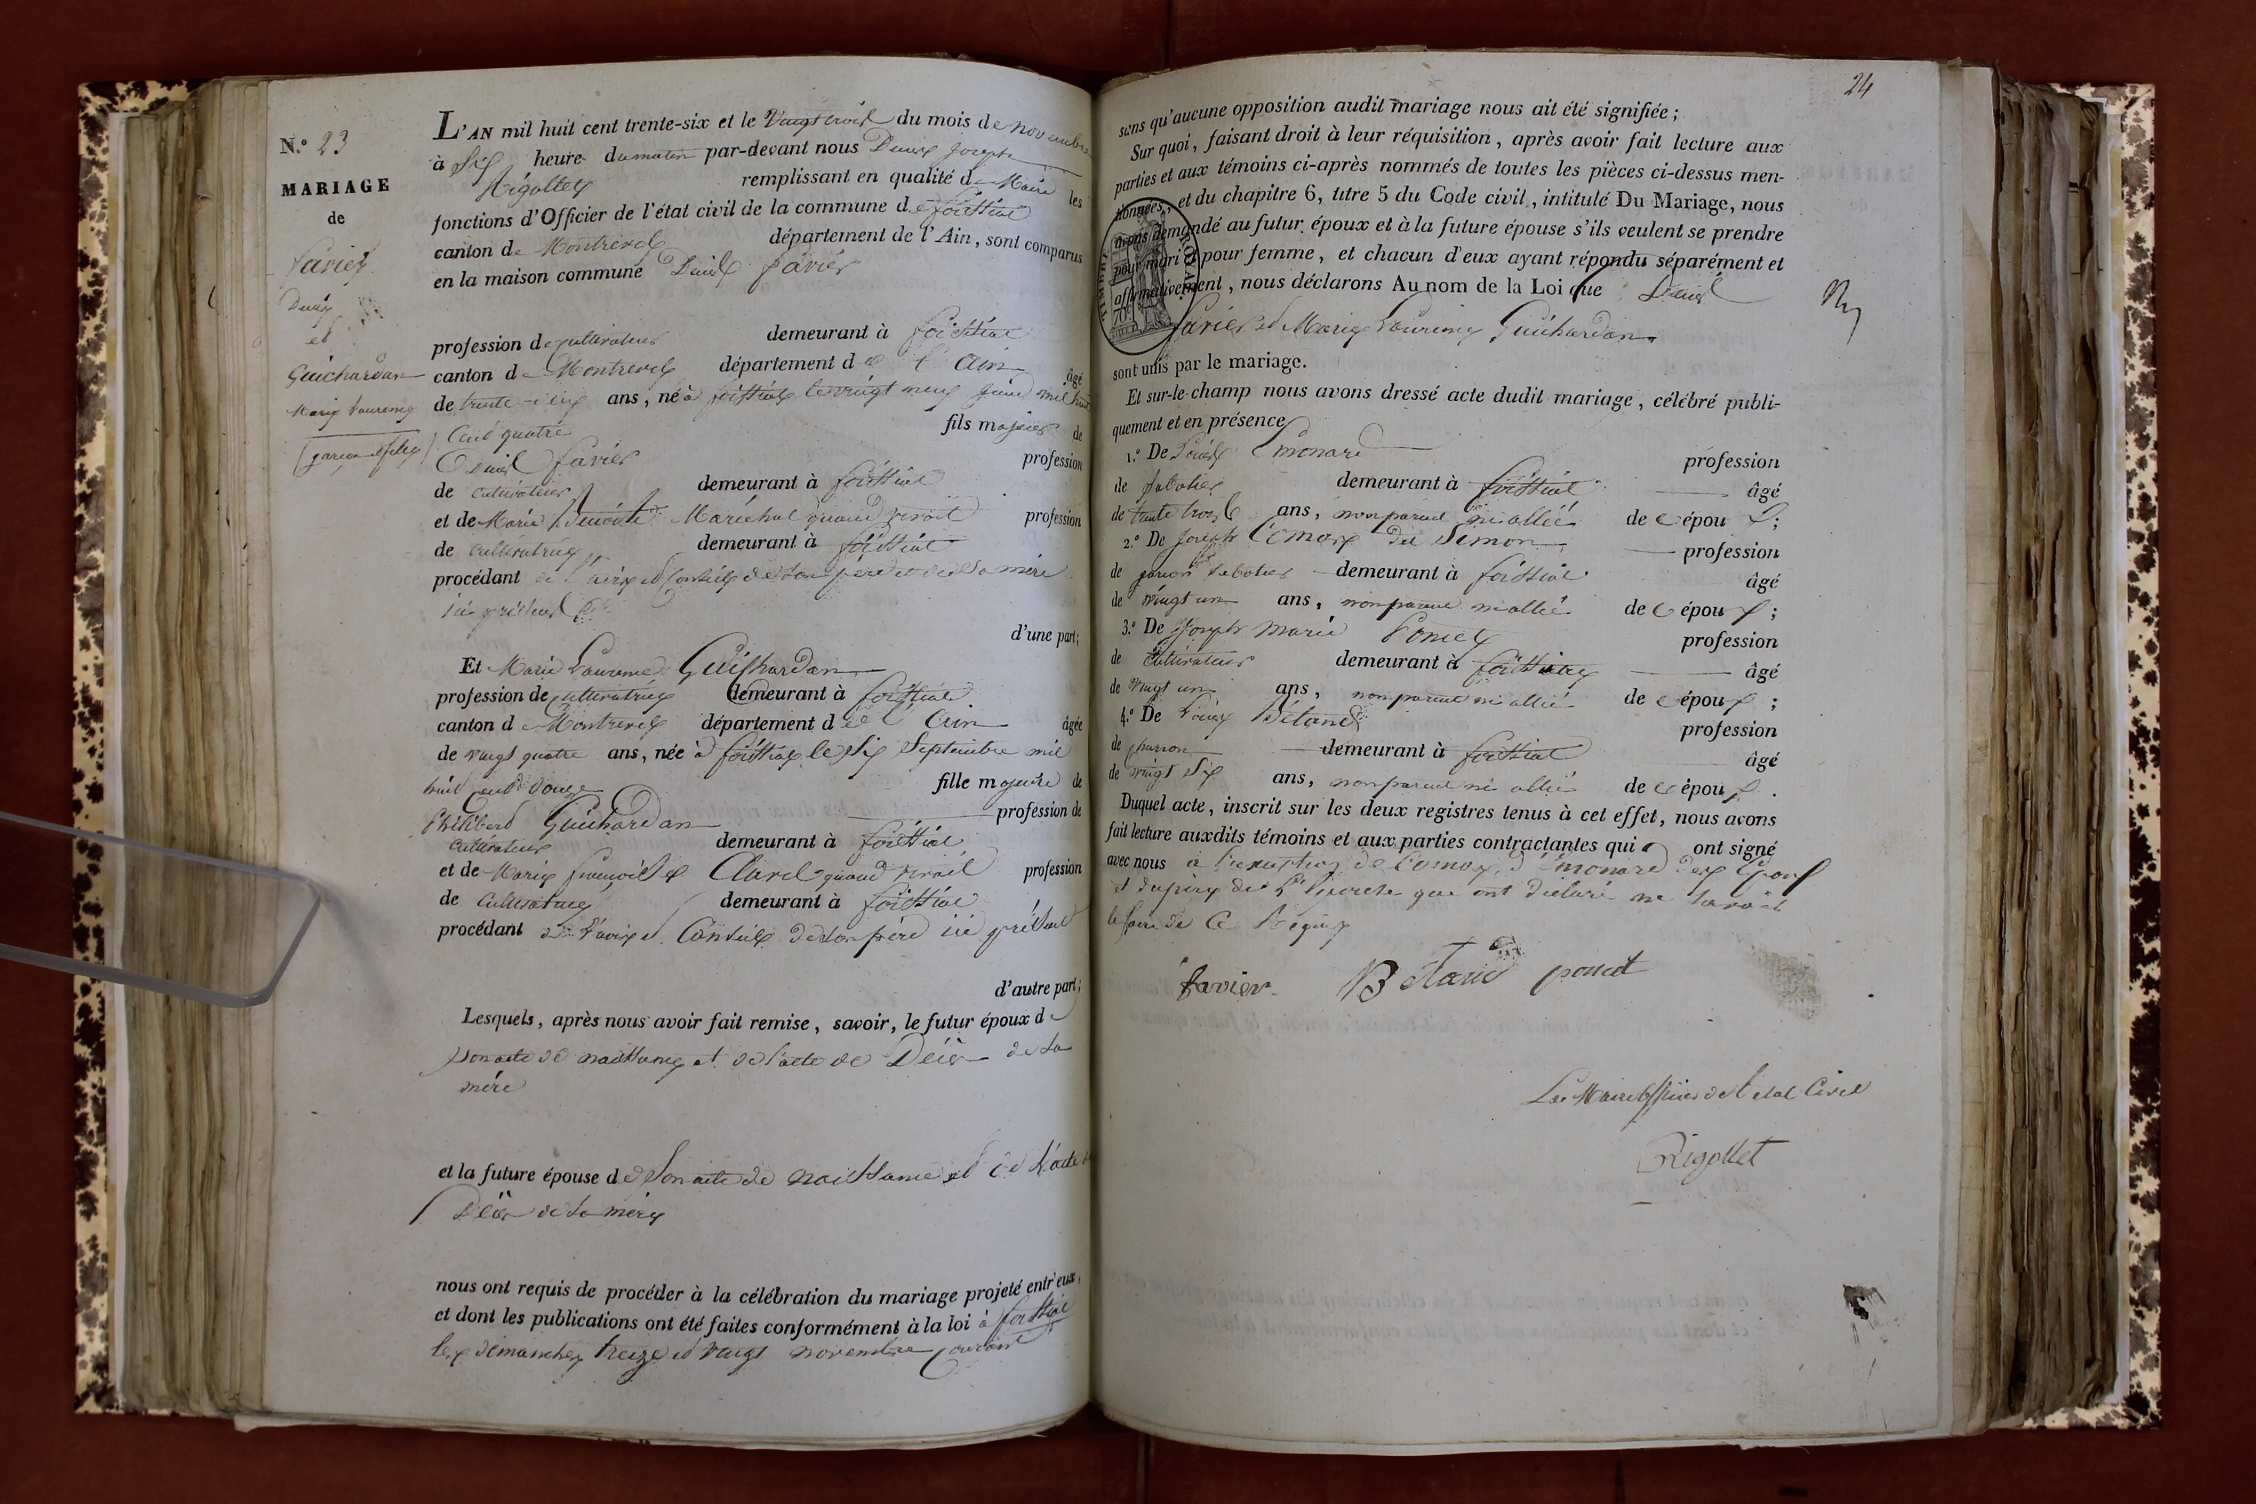 N.° 23
MARIAGE
de
Favier
Denis
et
Guichardan
Marie Laurence
(garçon et fille)
L'AN mil huit cent trente-six et le Vingt trois du mois de novembre
à Six heure du matin par-devant nous Denis Joseph
Rigollet remplissant en qualité de Maire les
fonctions d'Officier de l'état civil de la commune de foissiat
canton de Montrevel département de l'Ain, sont comparus
en la maison commune Denis favier
profession de cultivateur demeurant à foissiat
canton de Montrevel département de l'Ain âgé
de trente deux ans, né à foissiat le vingt neuf juin mil huit
Cent quatre fils majeur de
Denis favier profession
de cultivateur demeurant à foissiat
et de Marie Benoite Maréchal quand vivait profession
de cultivatrice demeurant à foissiat
procédant de l'avis et Conseil de son père et de sa mère
ici présent
d'une part;
Et Marie Laurence Guichardan
profession de cultivatrice demeurant à foissiat
canton de Montrevel département de l'Ain âgée
de vingt quatre ans, née à foissiat le six Septembre mil
huit cent douze fille majeure de
Philibert Guichardan profession de
cultivateur demeurant à foissiat
et de Marie françoise Clavel quand vivait profession
de cultivatrice demeurant à foissiat
procédant de l'avis et Conseil de son père ici présent
d'autre part;
Lesquels, après nous avoir fait remise, savoir, le futur époux de
son acte de naissance et de l'acte de Décès de sa
mère
et la future épouse de Son acte de naissance et de L'acte de
Décès de sa mère
nous ont requis de procéder à la célébration du mariage projeté entr'eux,
et dont les publications ont été faites conformément à la loi à foissiat
les dimanches treize et vingt novembre courant
24
sans qu'aucune opposition audit mariage nous ait été signifiée;
Sur quoi, faisant droit à leur réquisition, après avoir fait lecture aux
parties et aux témoins ci-après nommés de toutes les pièces ci-dessus men-
tionnées, et du chapitre 6, titre 5 du Code civil, intitulé Du Mariage, nous
avons demandé au futur époux et à la future épouse s'ils veulent se prendre
pour mari et pour femme, et chacun d'eux ayant répondu séparément et
affirmativement, nous déclarons Au nom de la Loi que Denis
favier et Marie Laurence Guichardan
sont unis par le mariage.
Et sur-le-champ nous avons dressé acte dudit mariage, célébré publi-
quement et en présence
1.° De Louis Emonard profession
de sabotier demeurant à foissiat âgé
de trente trois ans, non parent ni allié de c époux;
2.° De Joseph Comox dit Simon profession
de garçon sabotier demeurant à foissiat âgé
de vingt un ans, non parent ni allié de c époux;
3.° De Joseph Marie Poncet profession
de cultivateur demeurant à foissiat âgé
de vingt un ans, non parent ni allié de c époux;
4.° De Louis Bétand profession
de charron demeurant à foissiat âgé
de vingt six ans, non parent ni allié de c époux.
Duquel acte, inscrit sur les deux registres tenus à cet effet, nous avons
fait lecture auxdits témoins et aux parties contractantes qui ont signé
avec nous à l'exception de Comox, d'émonard des Epoux
et du père de L'épouse que ont déclaré ne savoir
le faire de ce Requis
favier Bétand poncet
Le Maire officier de l'état Civil
Rigollet
TIMBRE ROYAL